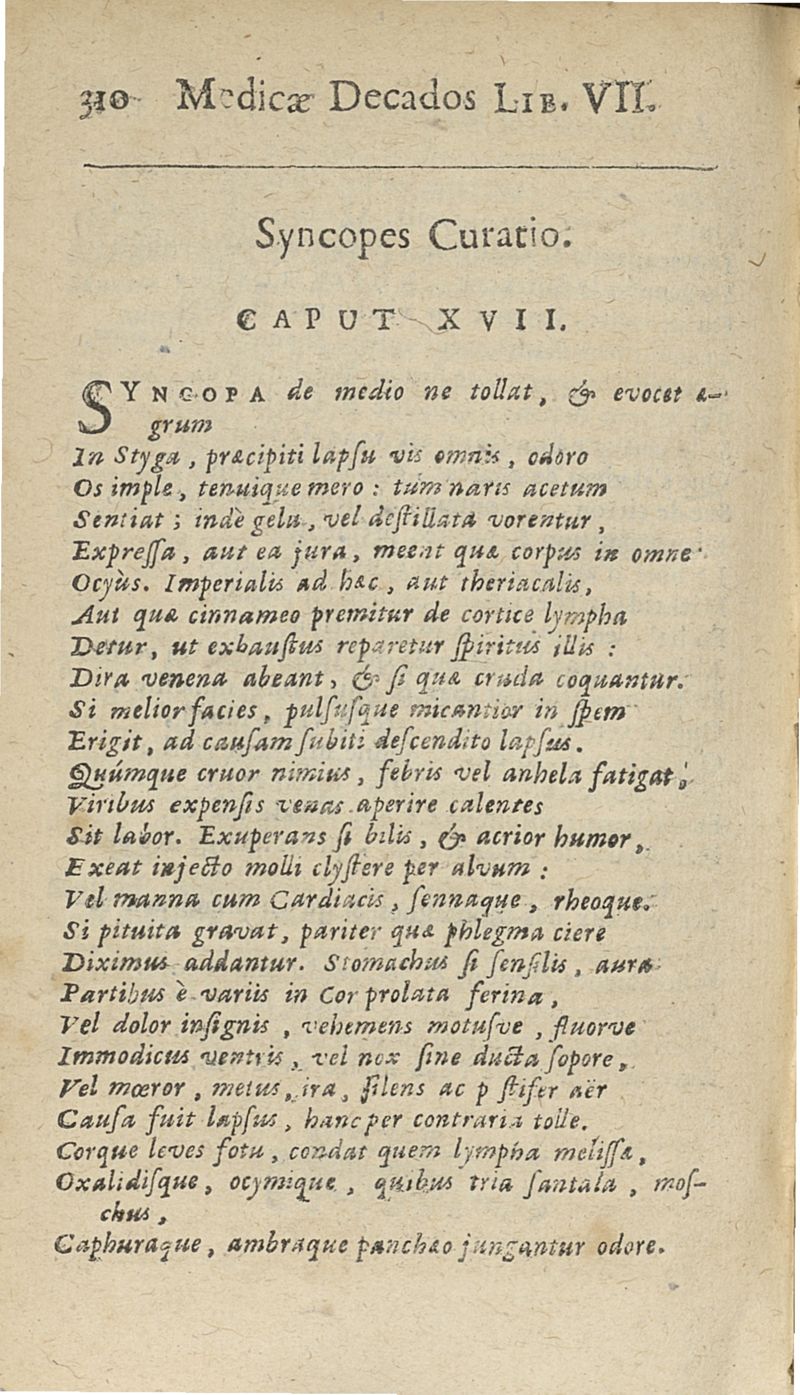 310 Medicæ Decados LIB. VII.
Syncopes Curatio.
CAPUT XVII.
SYNCOPA de medio ne tollat, & evocet æ-
grum
In Styga, præcipiti lapſu vis omnis, odoro
Os imple, tenuique mero: tùm naris acetum
Sentiat; indè gelu, vel deſtillata vorentur,
Expreſſa, aut ea jura, meent quæ corpus in omne
Ocyùs. Imperialis ad hæc, aut theriacalis,
Aut quæ cinnameo premitur de cortice lympha
Detur, ut exhauſtus reparetur ſpiritus illis:
Dira venena abeant, & ſi quæ cruda coquantur.
Si melior facies, pulſuſque micantior in ſpem
Erigit, ad cauſam ſubiti deſcendito lapſus.
Quúmque cruor nimius, febris vel anhela fatigat,
Viribus expenſis venas aperire calentes
Sit labor. Exuperans ſi bilis, & acrior humor,
Exeat injecto molli clyſtere per alvum:
Vel manna cum Cardiacis, ſennaque, rheoque.
Si pituita gravat, pariter quæ phlegma ciere
Diximus addantur. Stomachus ſi ſenſilis, auræ
Partibus è variis in Cor prolata ferina,
Vel dolor inſignis, vehemens motuſve, fluorve
Immodicus ventris, vel nox ſine ducta ſopore,
Vel mœror, metus, ira, ſilens ac p ſtifer aër
Cauſa fuit lapſus, hanc per contraria tolle.
Corque leves fotu, condat quem lympha meliſſæ,
Oxalidiſque, ocymique, quibus tria ſantala, moſ-
chus,
Caphuraque, ambraque panchæo jungantur odore.